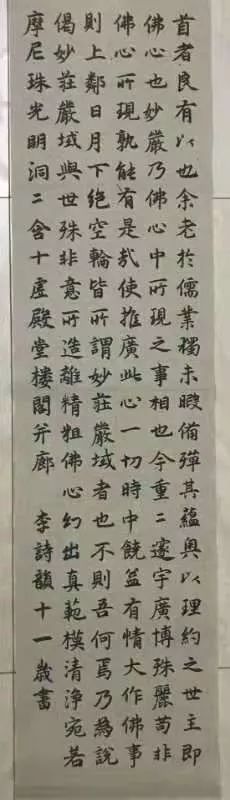 首者良有以也余老於儒業獨未暇備殫其蘊奧以理約之世主即
佛心也妙嚴乃佛心中所現之事相也今重二邃宇廣博殊麗苟非
佛心所現孰能有是哉使推廣此心一切時中饒益有情大作佛事
則上鄰日月下絕空輪皆所謂妙莊嚴域者也不則吾何焉乃為說
偈妙莊嚴域與世殊非意所造離精粗佛心幻出真範模清淨宛若
摩尼珠光明洞二含十虛殿堂樓閣并廊 李詩韻十一歲書